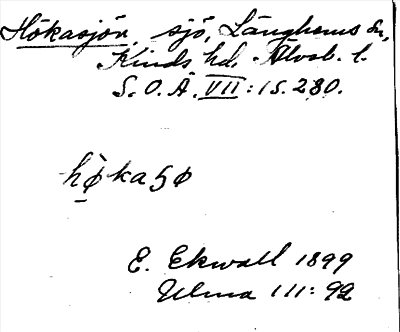 Hökasjön, sjö, Länghems sn,
Kinds hd. Älvsb. l.
S.O.Ä. VII: 1 S. 280.
hø̀kaɧø
E. Ekwall 1899
Ulma 111: 92